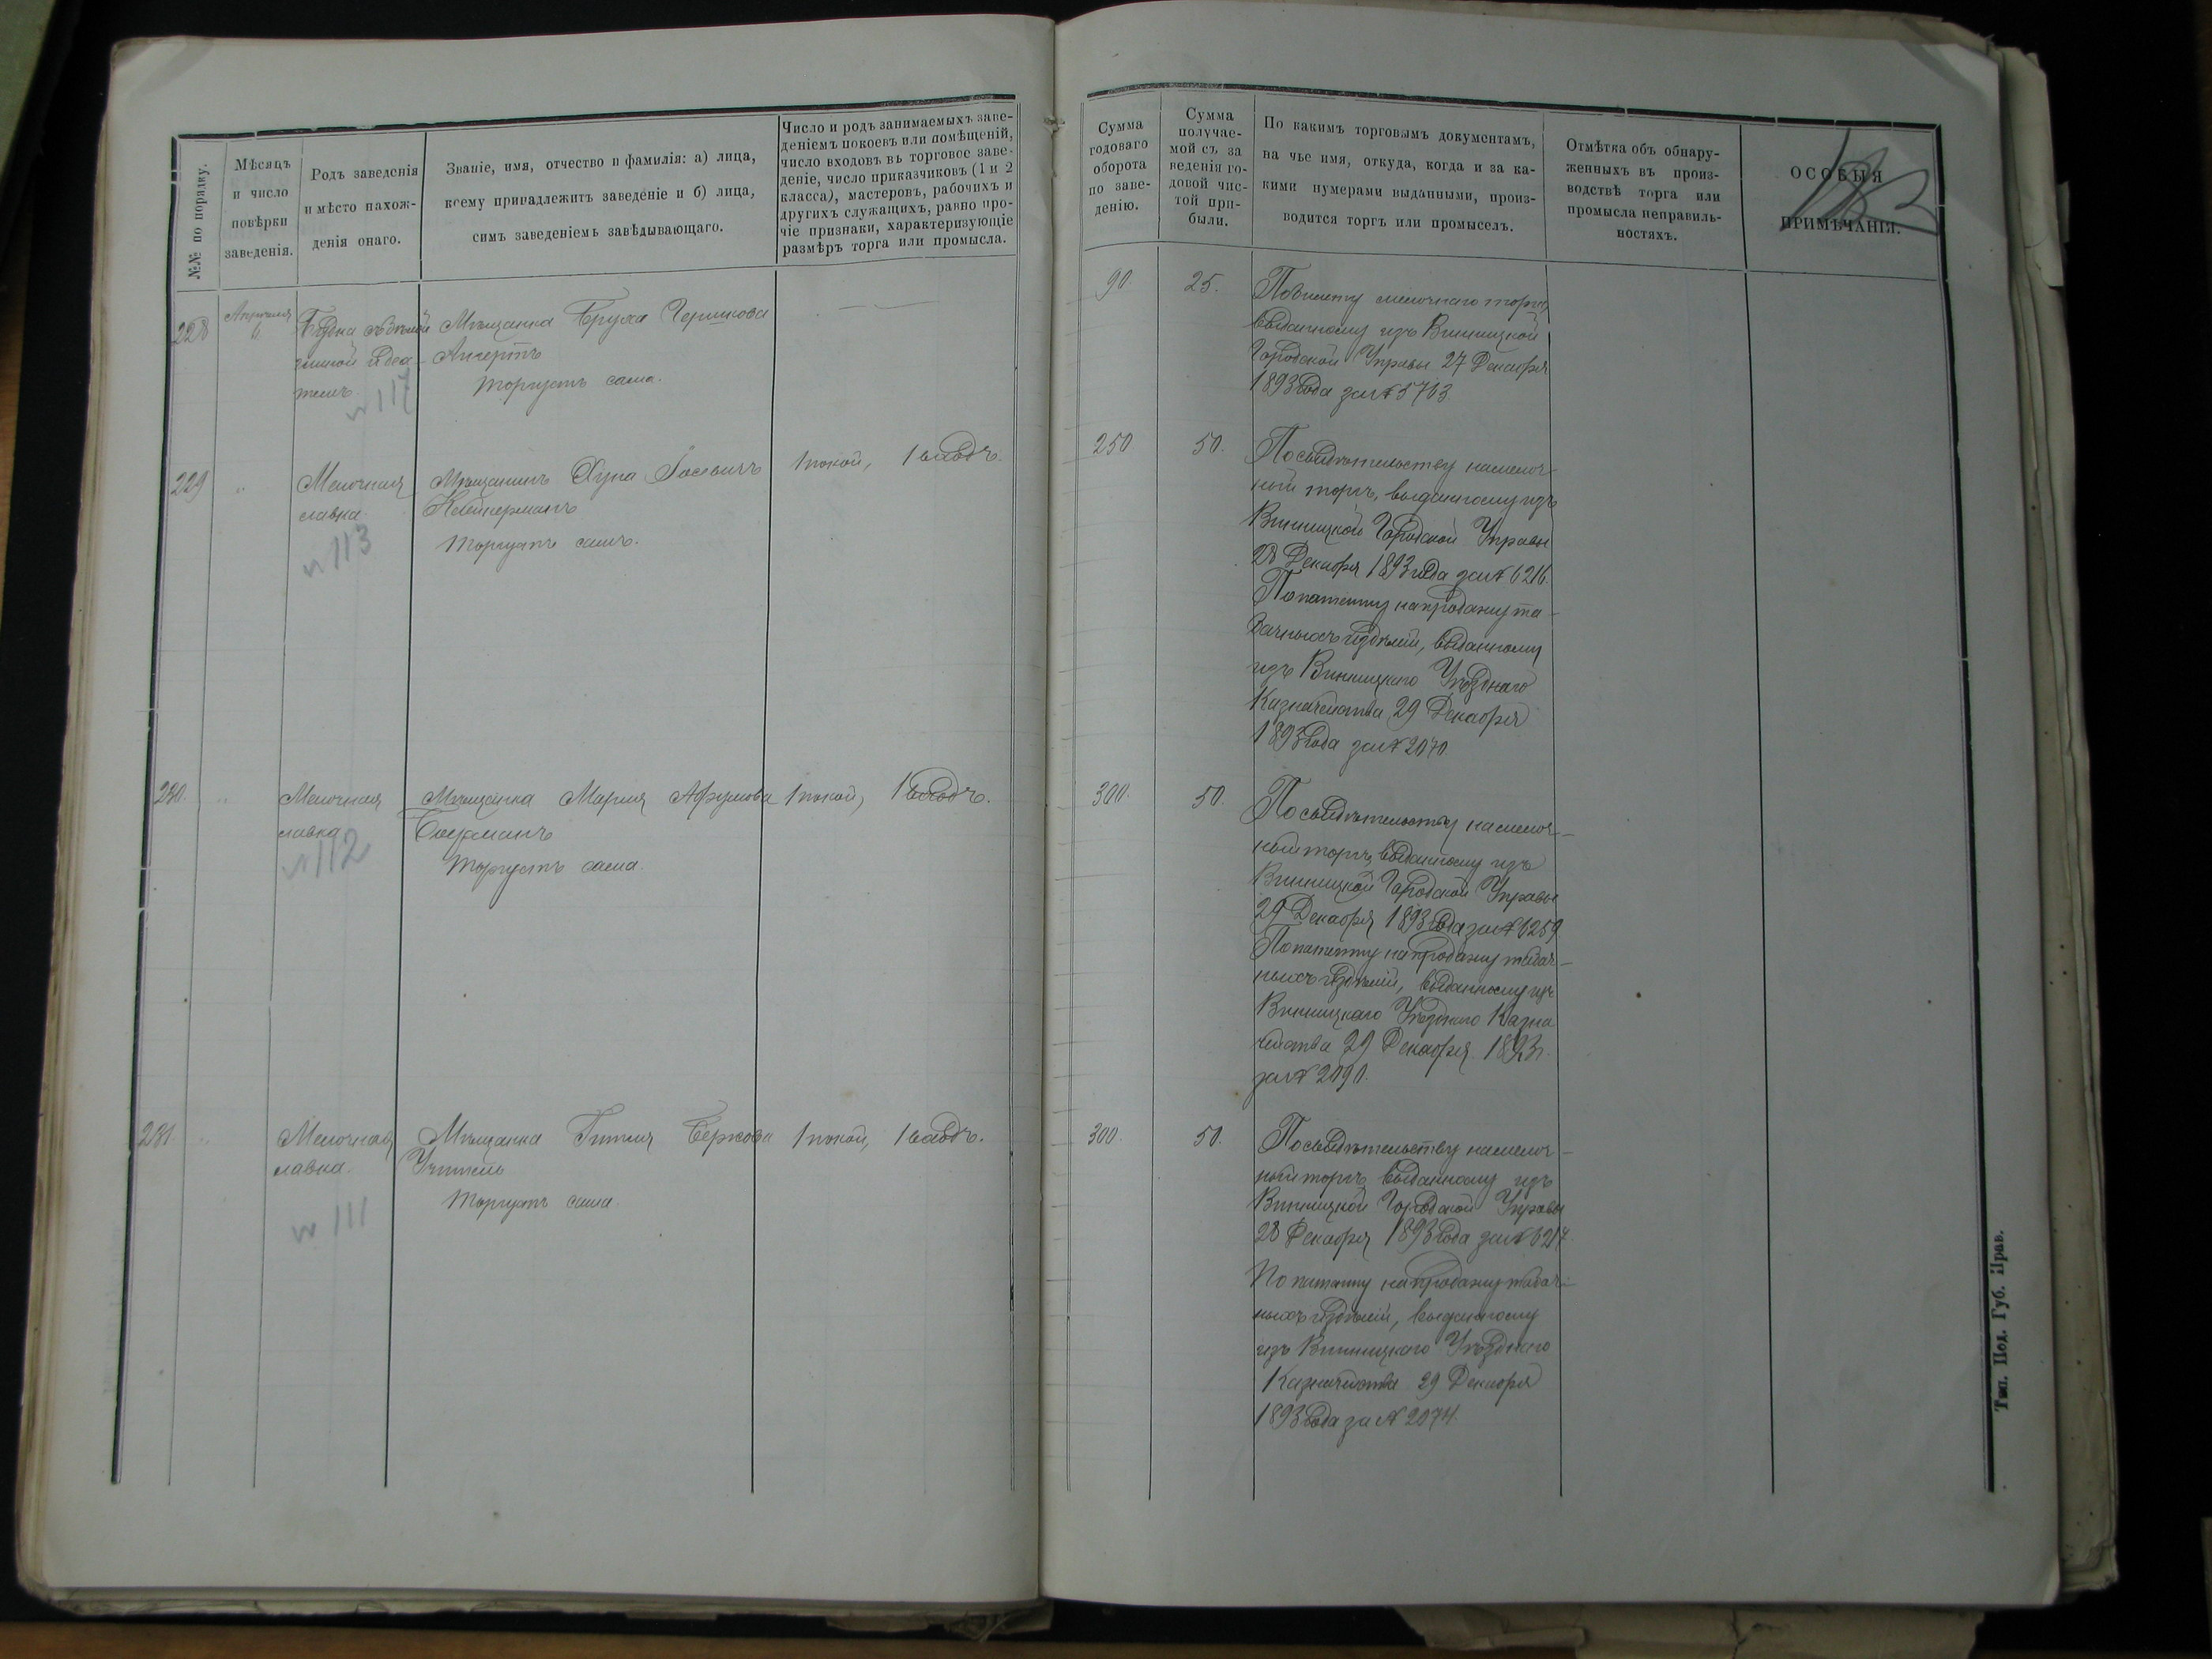 №№ по порядку.
Мѣсяцъ
и число
повѣрки
заведенія.
Родъ заведенія
и мѣсто нахож-
денія онаго.
Званіе, имя, отчество и фамилія: а) лица,
коему принадлежитъ заведеніе и б) лица,
симъ заведеніемъ завѣдывающаго.
Число и родъ занимаемыхъ заве-
деніемъ покоевъ или помѣщеній,
число входовъ въ торговое заве-
деніе, число приказчиковъ (1 и 2
класса), мастеровъ, рабочихъ и
другихъ служащихъ, равно про-
чіе признаки, характеризующіе
размѣръ торга или промысла.
Сумма
годоваго
оборота
по заве-
денію.
Сумма
получае-
мой съ за
веденія го-
довой чис-
той при-
были.
По какимъ торговымъ документамъ,
на чье имя, откуда, когда и за ка-
кими нумерами выданными, произ-
водится торгъ или промыселъ.
Отмѣтка объ обнару-
женныхъ въ произ-
водствѣ торга или
промысла неправиль-
ностяхъ.
ОСОБЫЯ
ПРИМѢЧАНІЯ.
228
Апрѣля
6
Будка
№ 117
Мѣщанка Бруха Гершкова
Торгуетъ сама.
90
25.
По билету мелочнаго торга,
выданному изъ Винницкой
Городской Управы 27 Декабря
1893 года за № 5703
229
"
Мелочная
лавка
№ 113
Мѣщанинъ Хуна Іосевичъ
Клейнерманъ
Торгуетъ самъ.
1 покой, 1 входъ.
250
50.
По свидѣтельству на мелоч-
ной торгъ, выданному изъ
Винницкой Городской Управы
28 Декабря 1893 года за № 6216.
По патенту на продажу та-
бачныхъ издѣлій, выданному
изъ Винницкаго Уѣзднаго
Казначейства 29 Декабря
1893 года за № 2070
230.
"
Мелочная
лавка
№ 112
Мѣщанка Мария
Торгуетъ сама.
1 покой, 1 входъ.
300.
50.
По свидѣтельству на мелоч-
ной торгъ, выданному изъ
Винницкой Городской Управы
29 Декабря 1893 года за № 6259
По патенту на продажу табач-
ныхъ издѣлій, выданному изъ
Винницкаго Уѣзднаго Казна
чейства 29 Декабря 1893 г.
за № 2090.
231.
"
Мелочная
лавка.
№ 111
Мѣщанка Гитля Беркова
Учитель
Торгуетъ сама.
1 покой, 1 входъ.
300.
50.
По свидѣтельству на мелоч-
ной торгъ выданному изъ
Винницкой Городской Управы
28 Декабря 1893 года за № 6217.
По патенту на продажу табач-
ныхъ издѣлій, выданному
изъ Винницкаго Уѣзднаго
Казначейства 29 Декабря
1893 года за № 2074
Тип. Под. Губ. Прав.